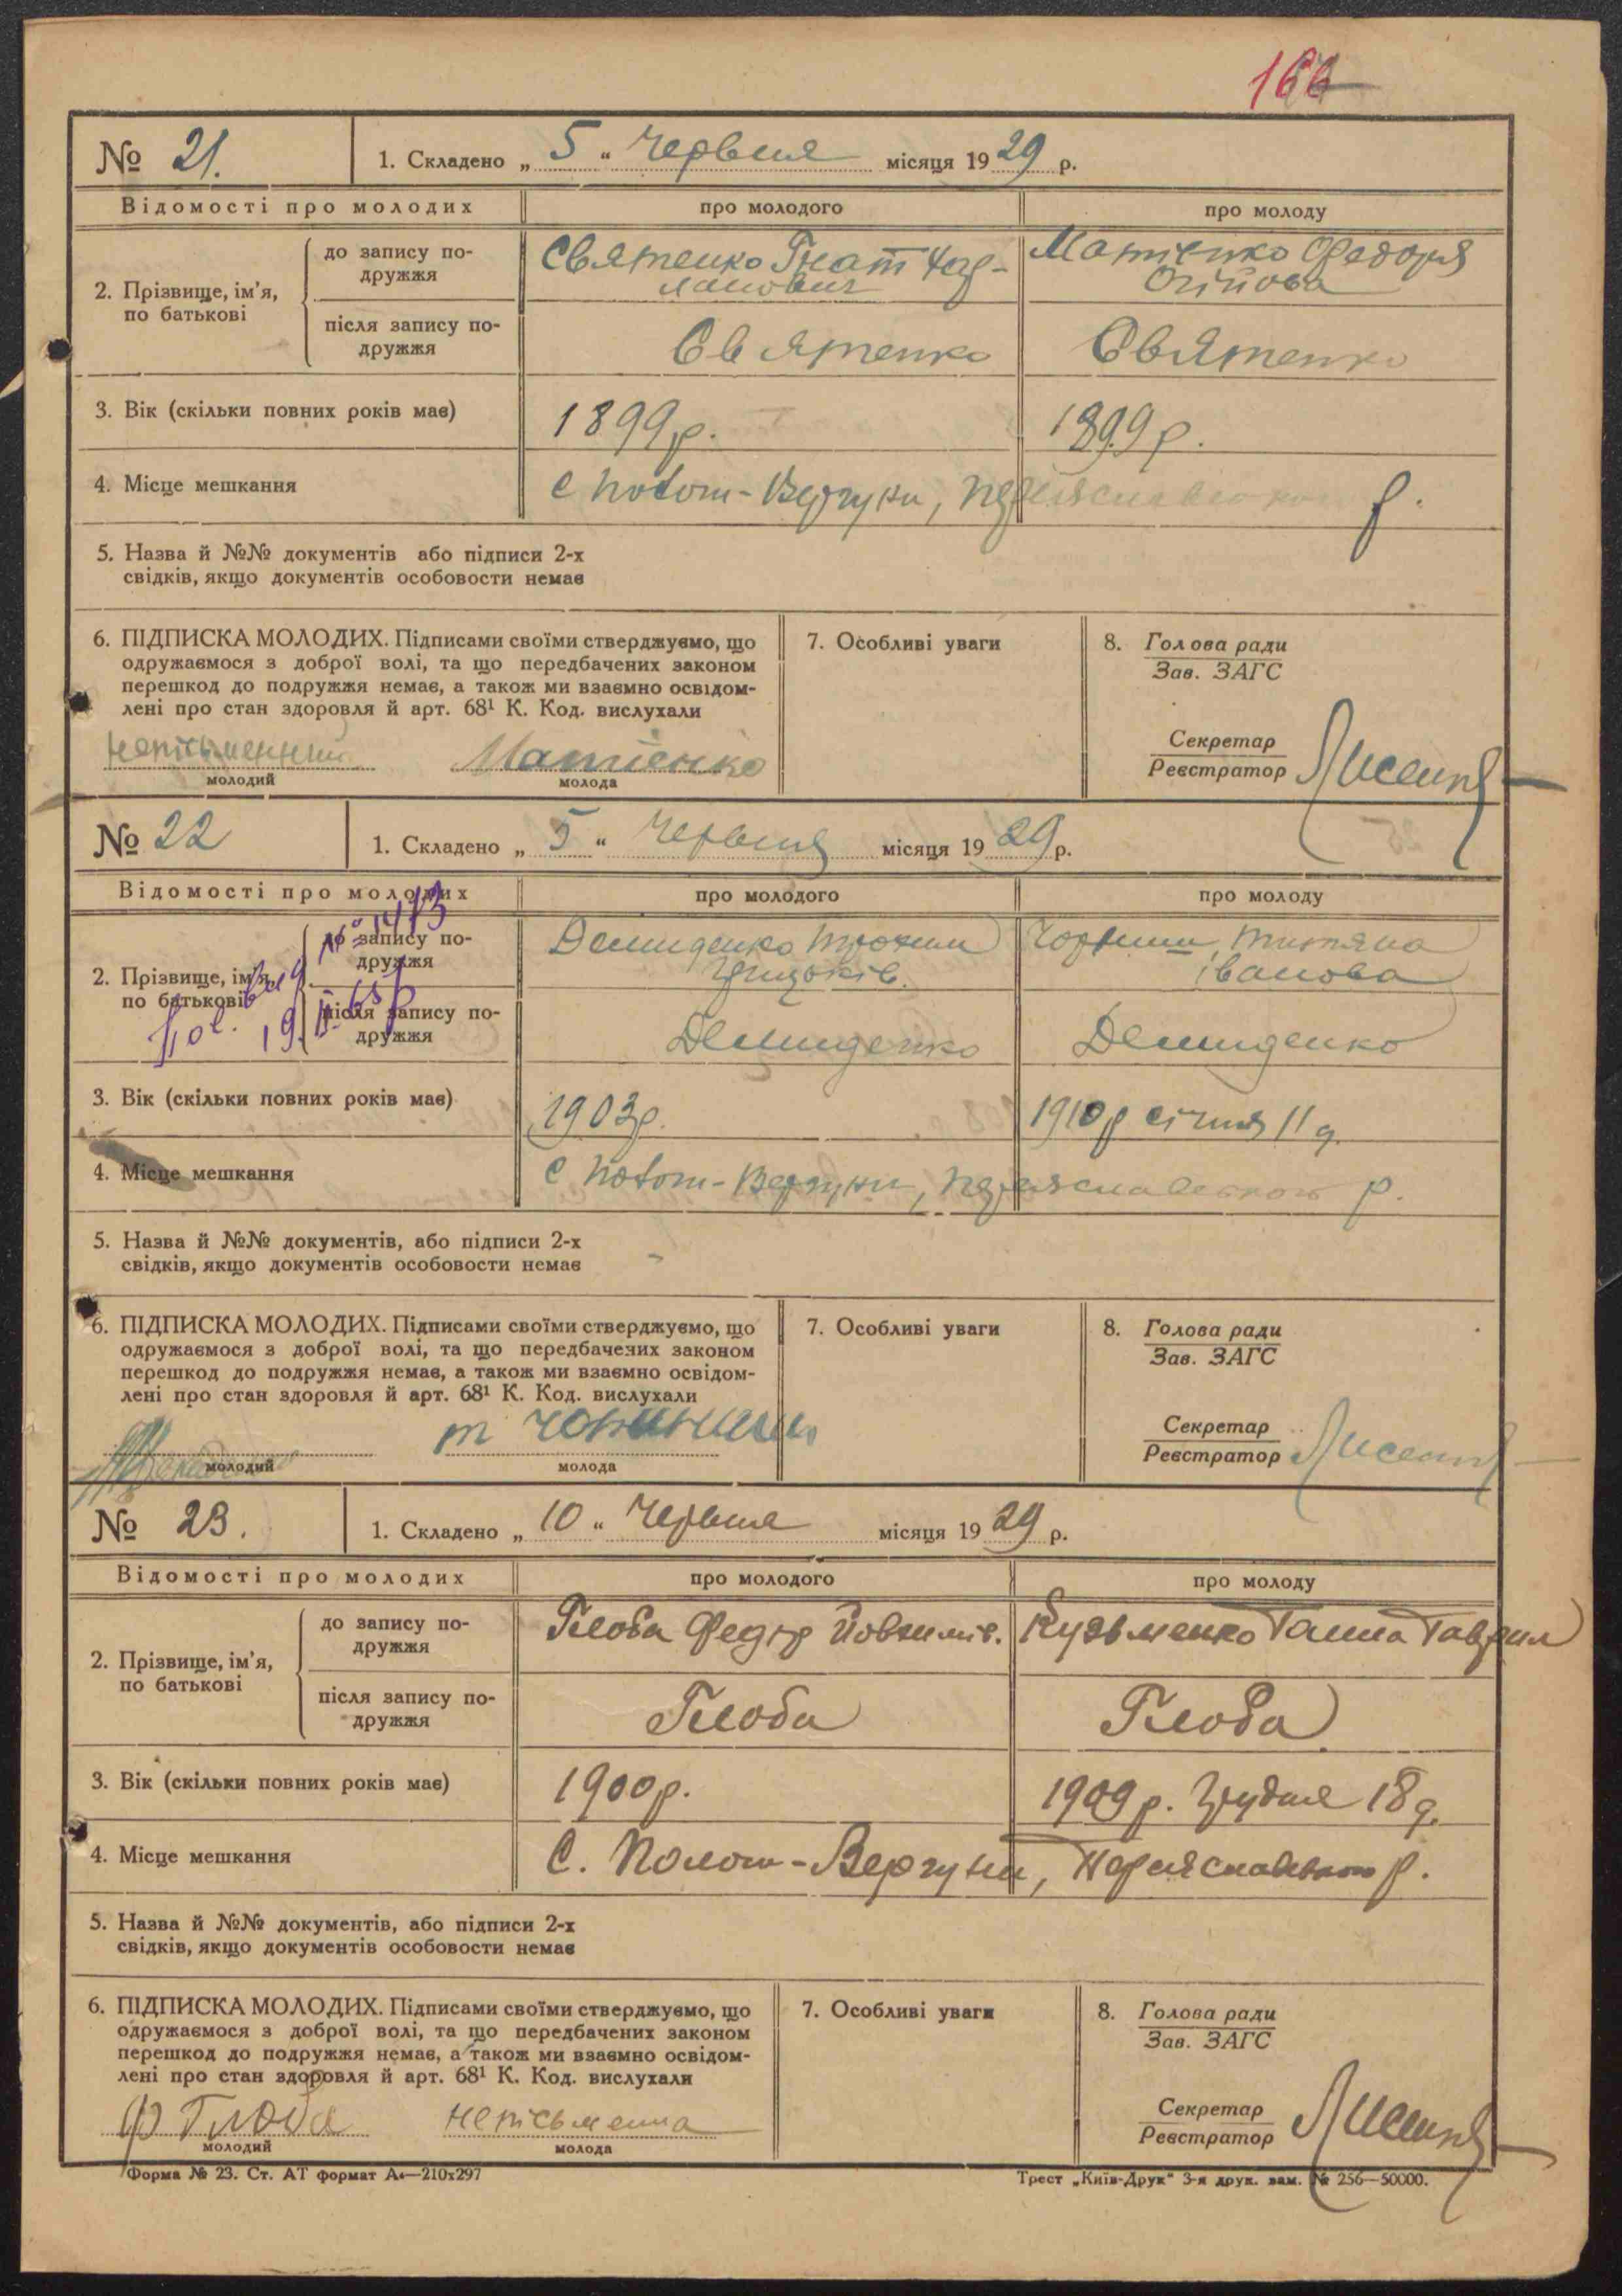 166
№ 21. 1. Складено „ 5 “ Червня місяця 19 29 р.
Відомості про молодих про молодого про молоду
2. Прізвище, ім’я, по батькові
до запису по-
дружжя
Святенко Гнат
Матієнко Федоря
після запису по-
дружжя
Святенко Святенко
3. Вік (скільки повних років має) 1899 р. 1899 р.
4. Місце мешкання с Полот-Вергуни, Переяславського р.
5. Назва й №№ документів або підписи 2-х
свідків, якщо документів особовости немає
6. ПІДПИСКА МОЛОДИХ. Підписами своїми стверджуємо, що
одружаємося з доброї волі, та що передбачених законом
перешкод до подружжя немає, а також ми взаємно освідом-
лені про стан здоровля й арт. 68¹ К. Код. вислухали
неписьменний Матієнко
молодий молода
7. Особливі уваги
8. Голова ради
Зав. ЗАГС
Секретар
Реєстратор
№ 22 1. Складено „ 5 “ Червня місяця 19 29 р.
Відомості про молодих про молодого про молоду
№ 1473
2. Прізвище, ім’я, по батькові
до запису по-
дружжя
Демиденко Трохим
Грицьків.
Титяна
Іванова
після запису по-
дружжя
Демиденко Демиденко
3. Вік (скільки повних років має) 1903р. 1910 р січня 11 д.
4. Місце мешкання с Полот-Вергуни, Переяславського р.
5. Назва й №№ документів, або підписи 2-х
свідків, якщо документів особовости немає
6. ПІДПИСКА МОЛОДИХ. Підписами своїми стверджуємо, що
одружаємося з доброї волі, та що передбачених законом
перешкод до подружжя немає, а також ми взаємно освідом-
лені про стан здоровля й арт. 68¹ К. Код. вислухали
молодий молода
7. Особливі уваги
8. Голова ради
Зав. ЗАГС
Секретар
Реєстратор
№ 23. 1. Складено „ 10 “ Червня місяця 19 29 р.
Відомості про молодих про молодого про молоду
2. Прізвище, ім’я, по батькові
до запису по-
дружжя
Глоба Федір Йовхимів. Кузьменко Ганна Гаврил
після запису по-
дружжя
Глоба Глоба
3. Вік (скільки повних років має) 1900р. 1909 р. Грудня 18 д.
4. Місце мешкання С. Полот-Вергуни, Переяславського р.
5. Назва й №№ документів, або підписи 2-х
свідків, якщо документів особовости немає
6. ПІДПИСКА МОЛОДИХ. Підписами своїми стверджуємо, що
одружаємося з доброї волі, та що передбачених законом
перешкод до подружжя немає, а також ми взаємно освідом-
лені про стан здоровля й арт. 68¹ К. Код. вислухали
Ф Глоба неписьменна
молодий молода
7. Особливі уваги
8. Голова ради
Зав. ЗАГС
Секретар
Реєстратор
Форма № 23. Ст. АТ формат А₄—210x297 Трест „Київ-Друк“ 3-я друк. зам. № 256—50000.